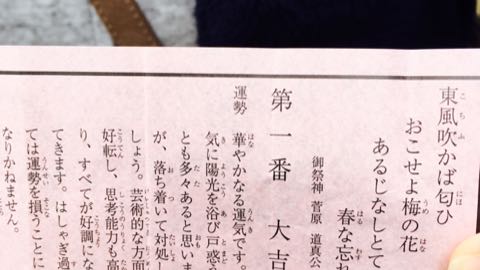 東風吹かば匂ひ
おこせよ梅の花
あるじなしとて
春な忘れ
御祭神 菅原 道真公
第一番 大吉
運勢
華やかなる運気です。
気に陽光を浴び戸惑う
とも多々あると思いま
が、落ち着いて対処し
しょう。芸術的な方面
好転し、思考能力も高
り、すべてが好調にな
てきます。はしゃぎ過
ては運勢を損うことに
なりかねません。